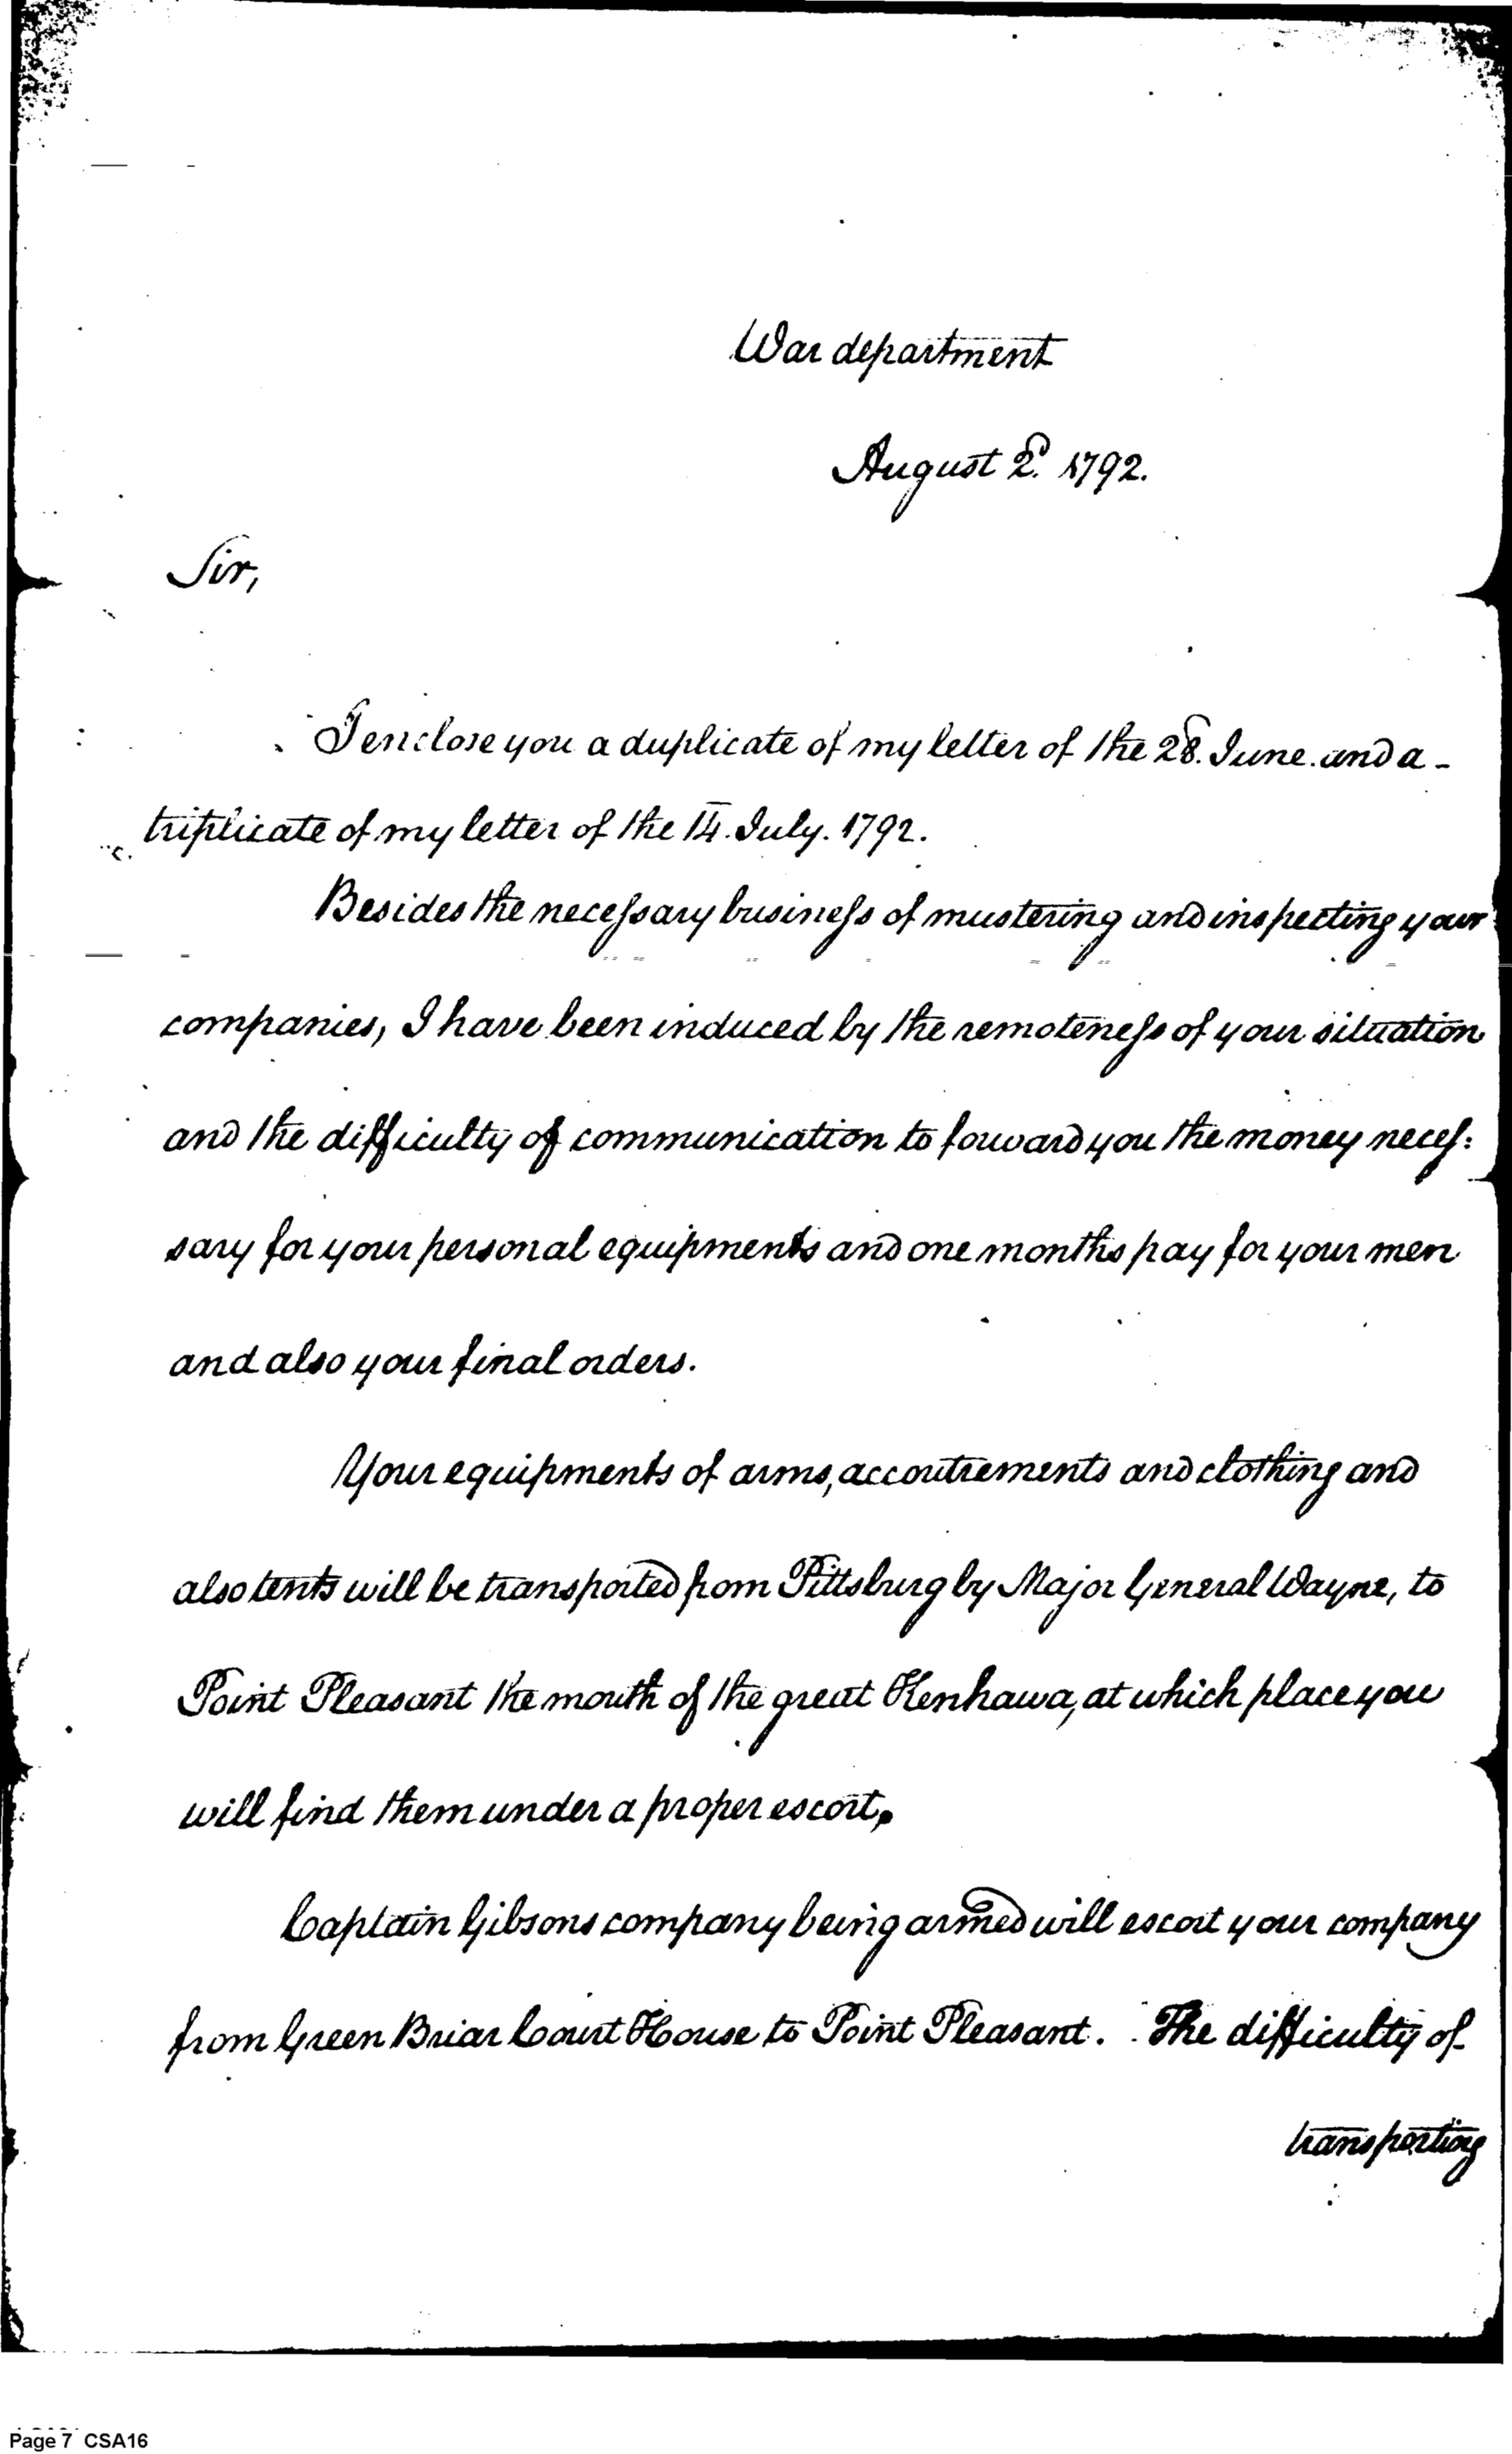 War department
August 2d. 1792.
Sir,
I enclose you a duplicate of my letter of the 28. June. and a -
triplicate of my letter of the 14. July. 1792.
Besides the necessary business of mustering and inspecting your
companies, I have been induced by the remoteness of your situation
and the difficulty of communication to forward you the money neces:
sary for your personal equipments and one months pay for your men
and also your final orders.
Your equipments of arms, accoutrements and clothing and
also tents will be transported from Pittsburg by Major General Wayne, to
Point Pleasant the mouth of the great Kenhawa, at which place you
will find them under a proper escort,
Captain Gibsons company being armed will escort your company
from Green Briar Court House to Point Pleasant. The difficulty of
transporting
Page 7 CSA16